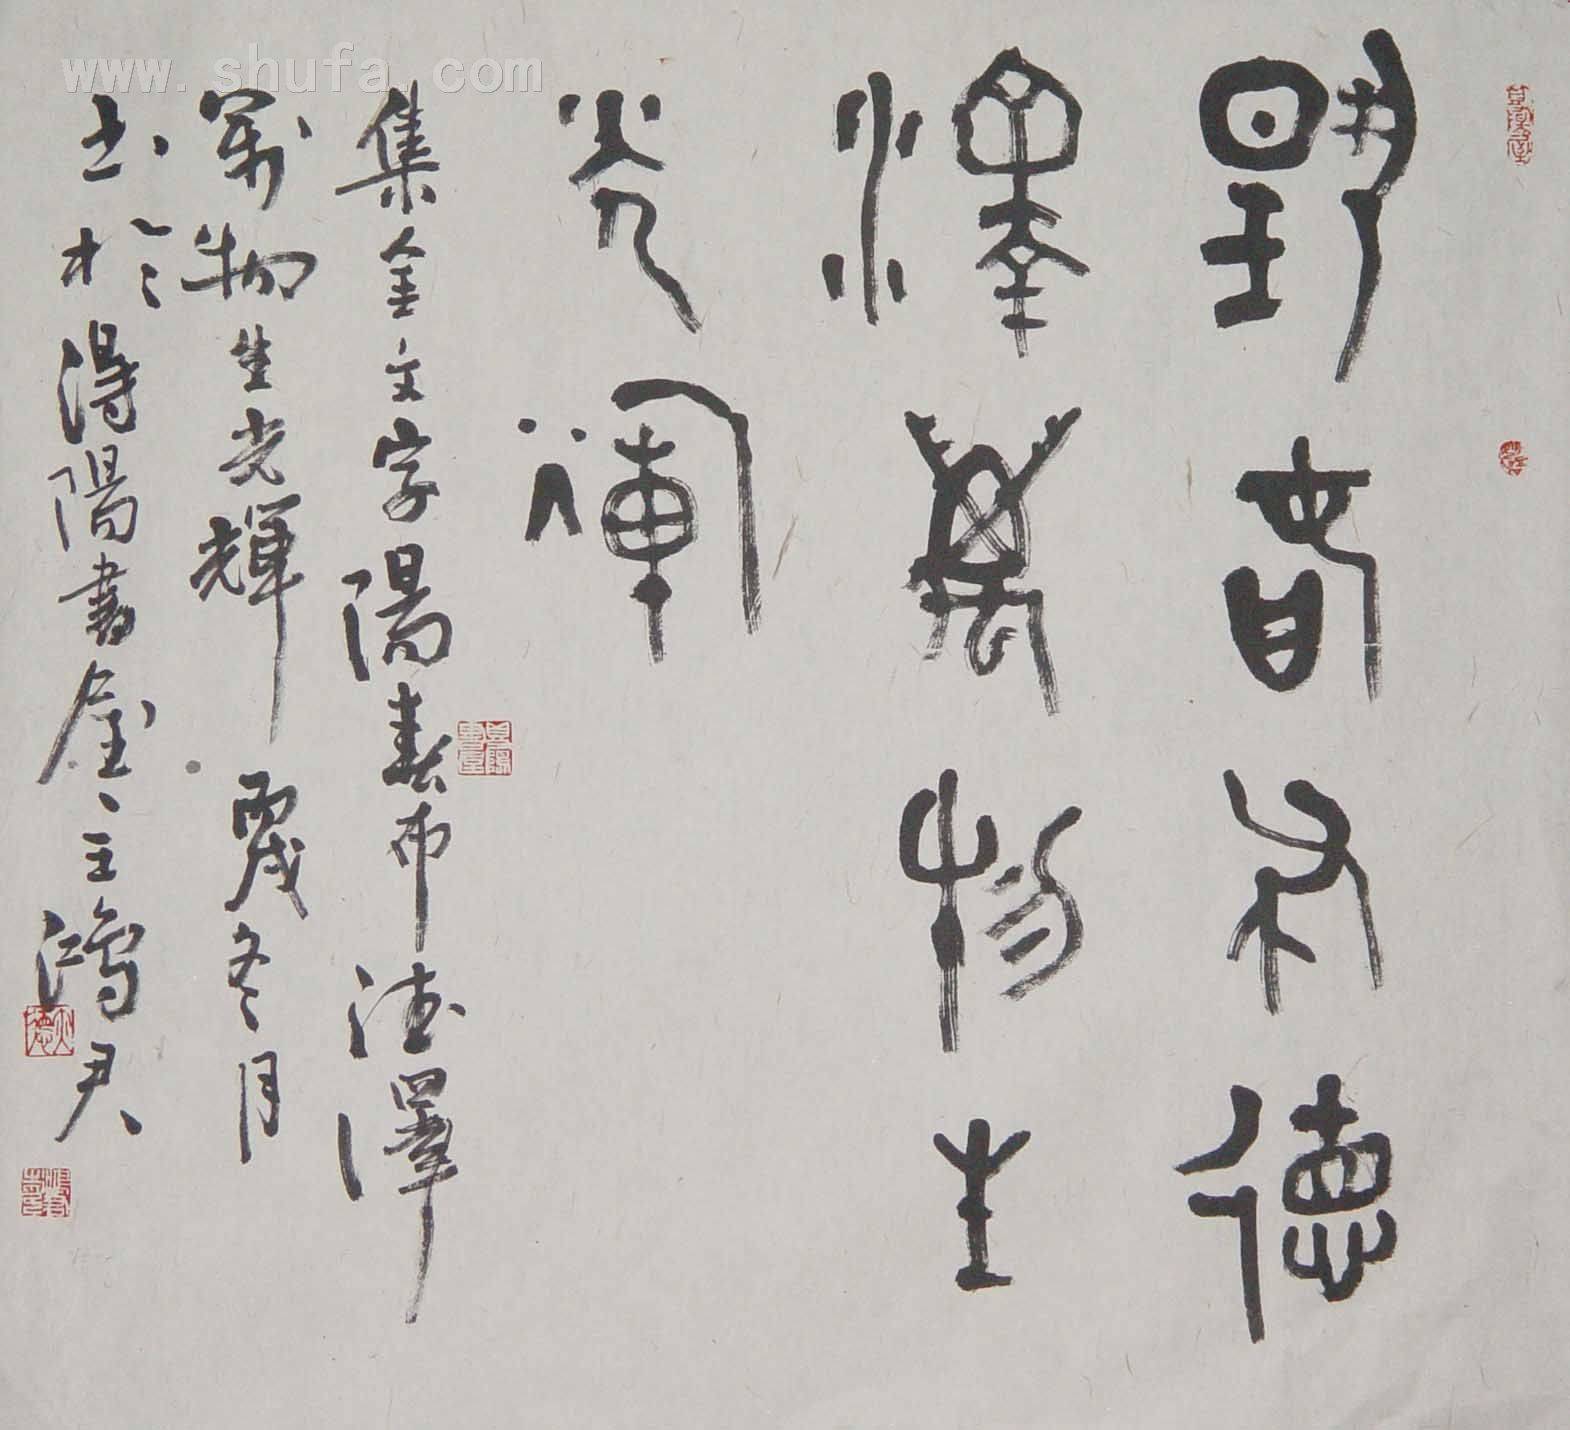 陽春布德
澤萬物生
光輝
集金文字陽春布德澤
萬物生光輝 丙戌冬月
書於得陽書屋主鴻君
www.shufa.com